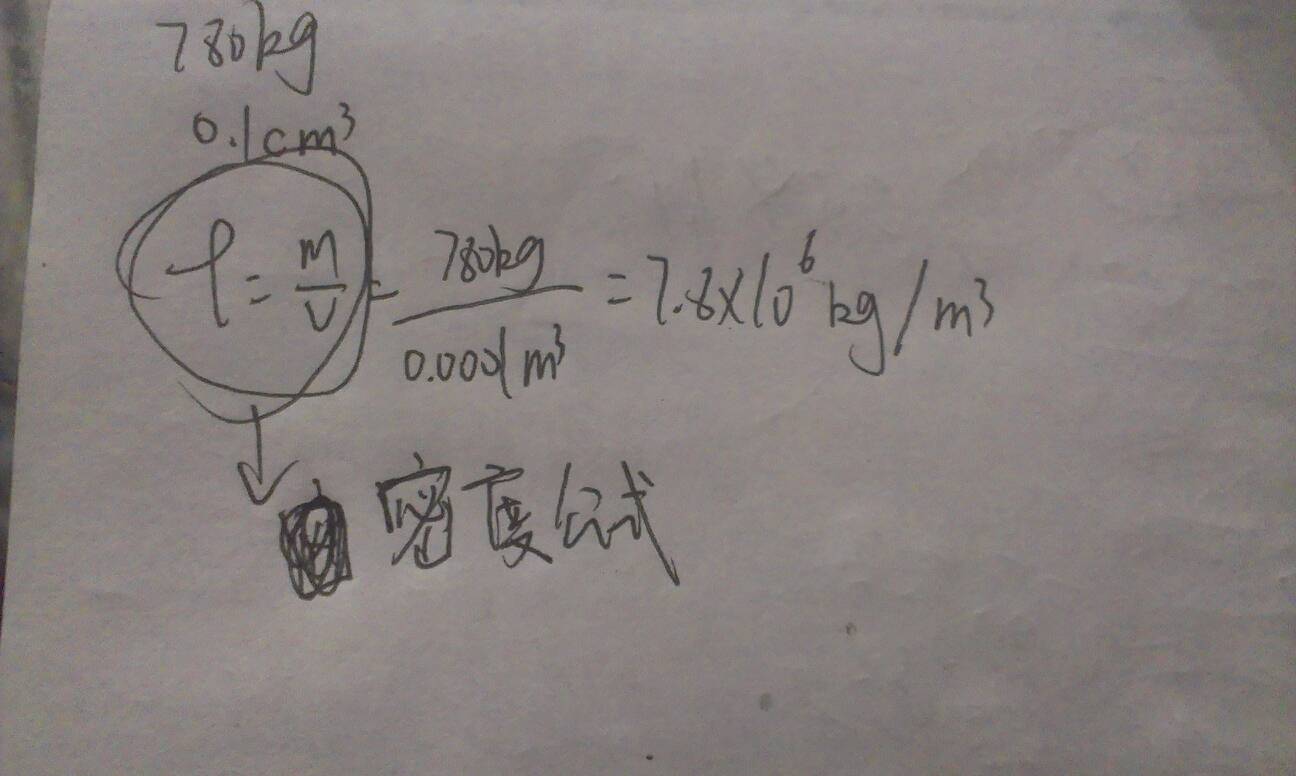 780kg
0.1cm³
ρ = m/v = 780kg/0.0001m³ = 7.8×10⁶ kg/m³
密度公式